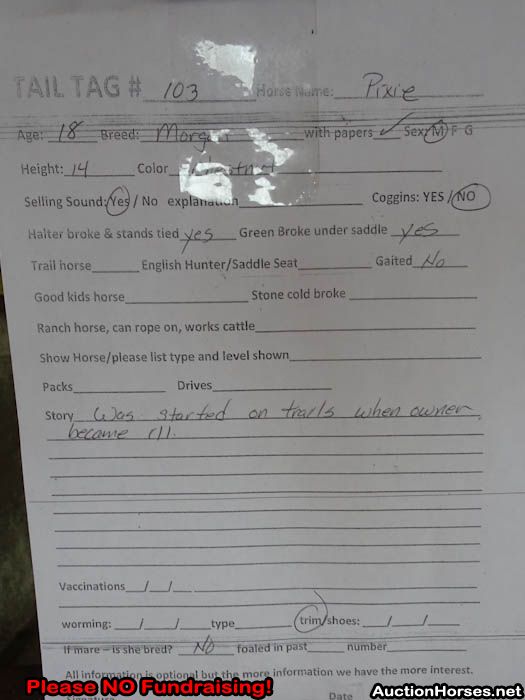 TAIL TAG # 103 Horse Name: Pixie
Age: 18 Breed: Morgan with papers ✓ Sex: M F G
Height: 14 Color Chestnut
Selling Sound: Yes / No explanation Coggins: YES / NO
Halter broke & stands tied yes Green Broke under saddle yes
Trail horse English Hunter/Saddle Seat Gaited No
Good kids horse Stone cold broke
Ranch horse, can rope on, works cattle
Show Horse/please list type and level shown
Packs Drives
Story Was started on trails when owner
became ill.
Vaccinations / /
worming: / / type trim/shoes: / /
If mare – is she bred? No foaled in past number
All information is optional but the more information we have the more interest.
Signature Date
Please NO Fundraising! AuctionHorses.net